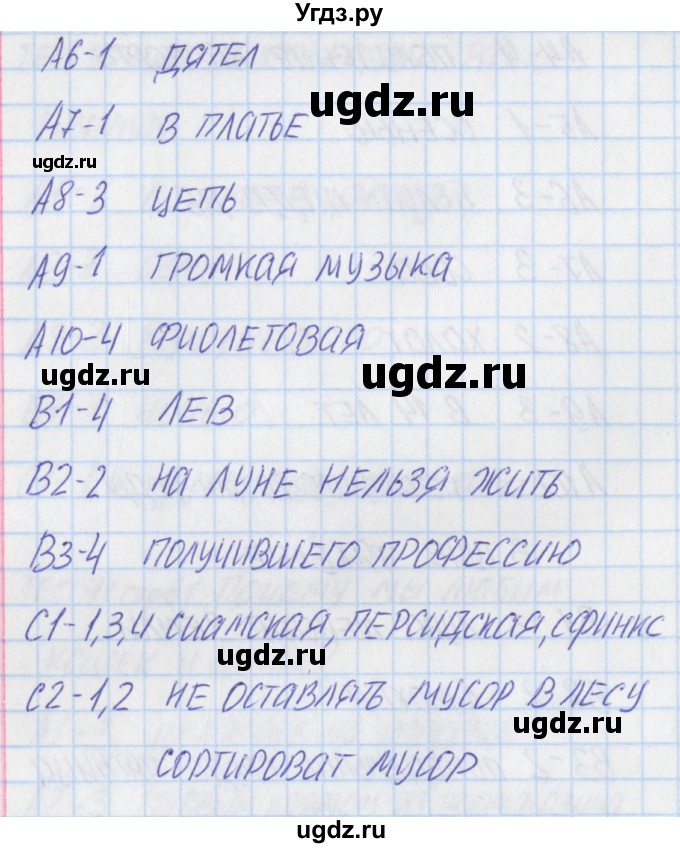 Угдз.ру
А6-1 ДЯТЕЛ
ugdz.ru
А7-1 В ПЛАТЬЕ
ugdz.ru
А8-3 ЦЕПЬ
А9-1 ГРОМКАЯ МУЗЫКА
А10-4 ФИОЛЕТОВАЯ
ugdz.ru
ugdz.ru
В1-4 ЛЕВ
В2-2 НА ЛУНЕ НЕЛЬЗЯ ЖИТЬ
В3-4 ПОЛУЧИВШЕГО ПРОФЕССИЮ
С1-1,3,4 СИАМСКАЯ, ПЕРСИДСКАЯ, СФИНКС
ugdz.ru
С2-1,2 НЕ ОСТАВЛЯТЬ МУСОР В ЛЕСУ
ugdz.ru
СОРТИРОВАТ МУСОР
ugdz.ru